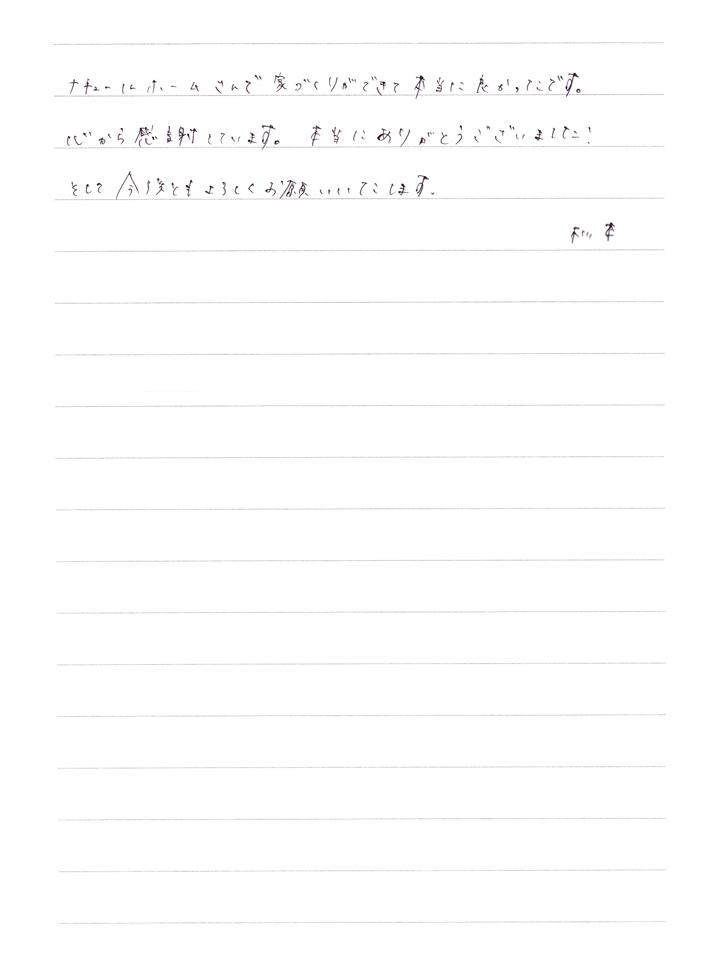 ナチュールホームさんで家づくりができて本当に良かったです。
心から感謝しています。 本当にありがとうございました!
そして今後ともよろしくお願いいたします。
松本